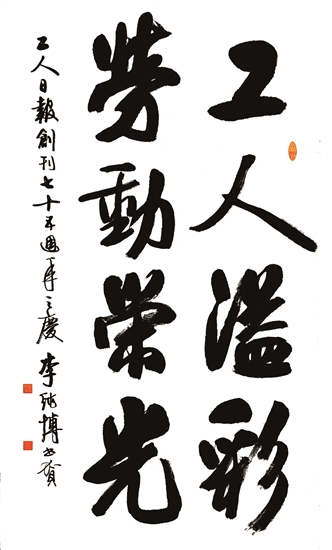 工人溢彩
勞動榮光
工人日報創刊七十五週年之慶 李 博書賀